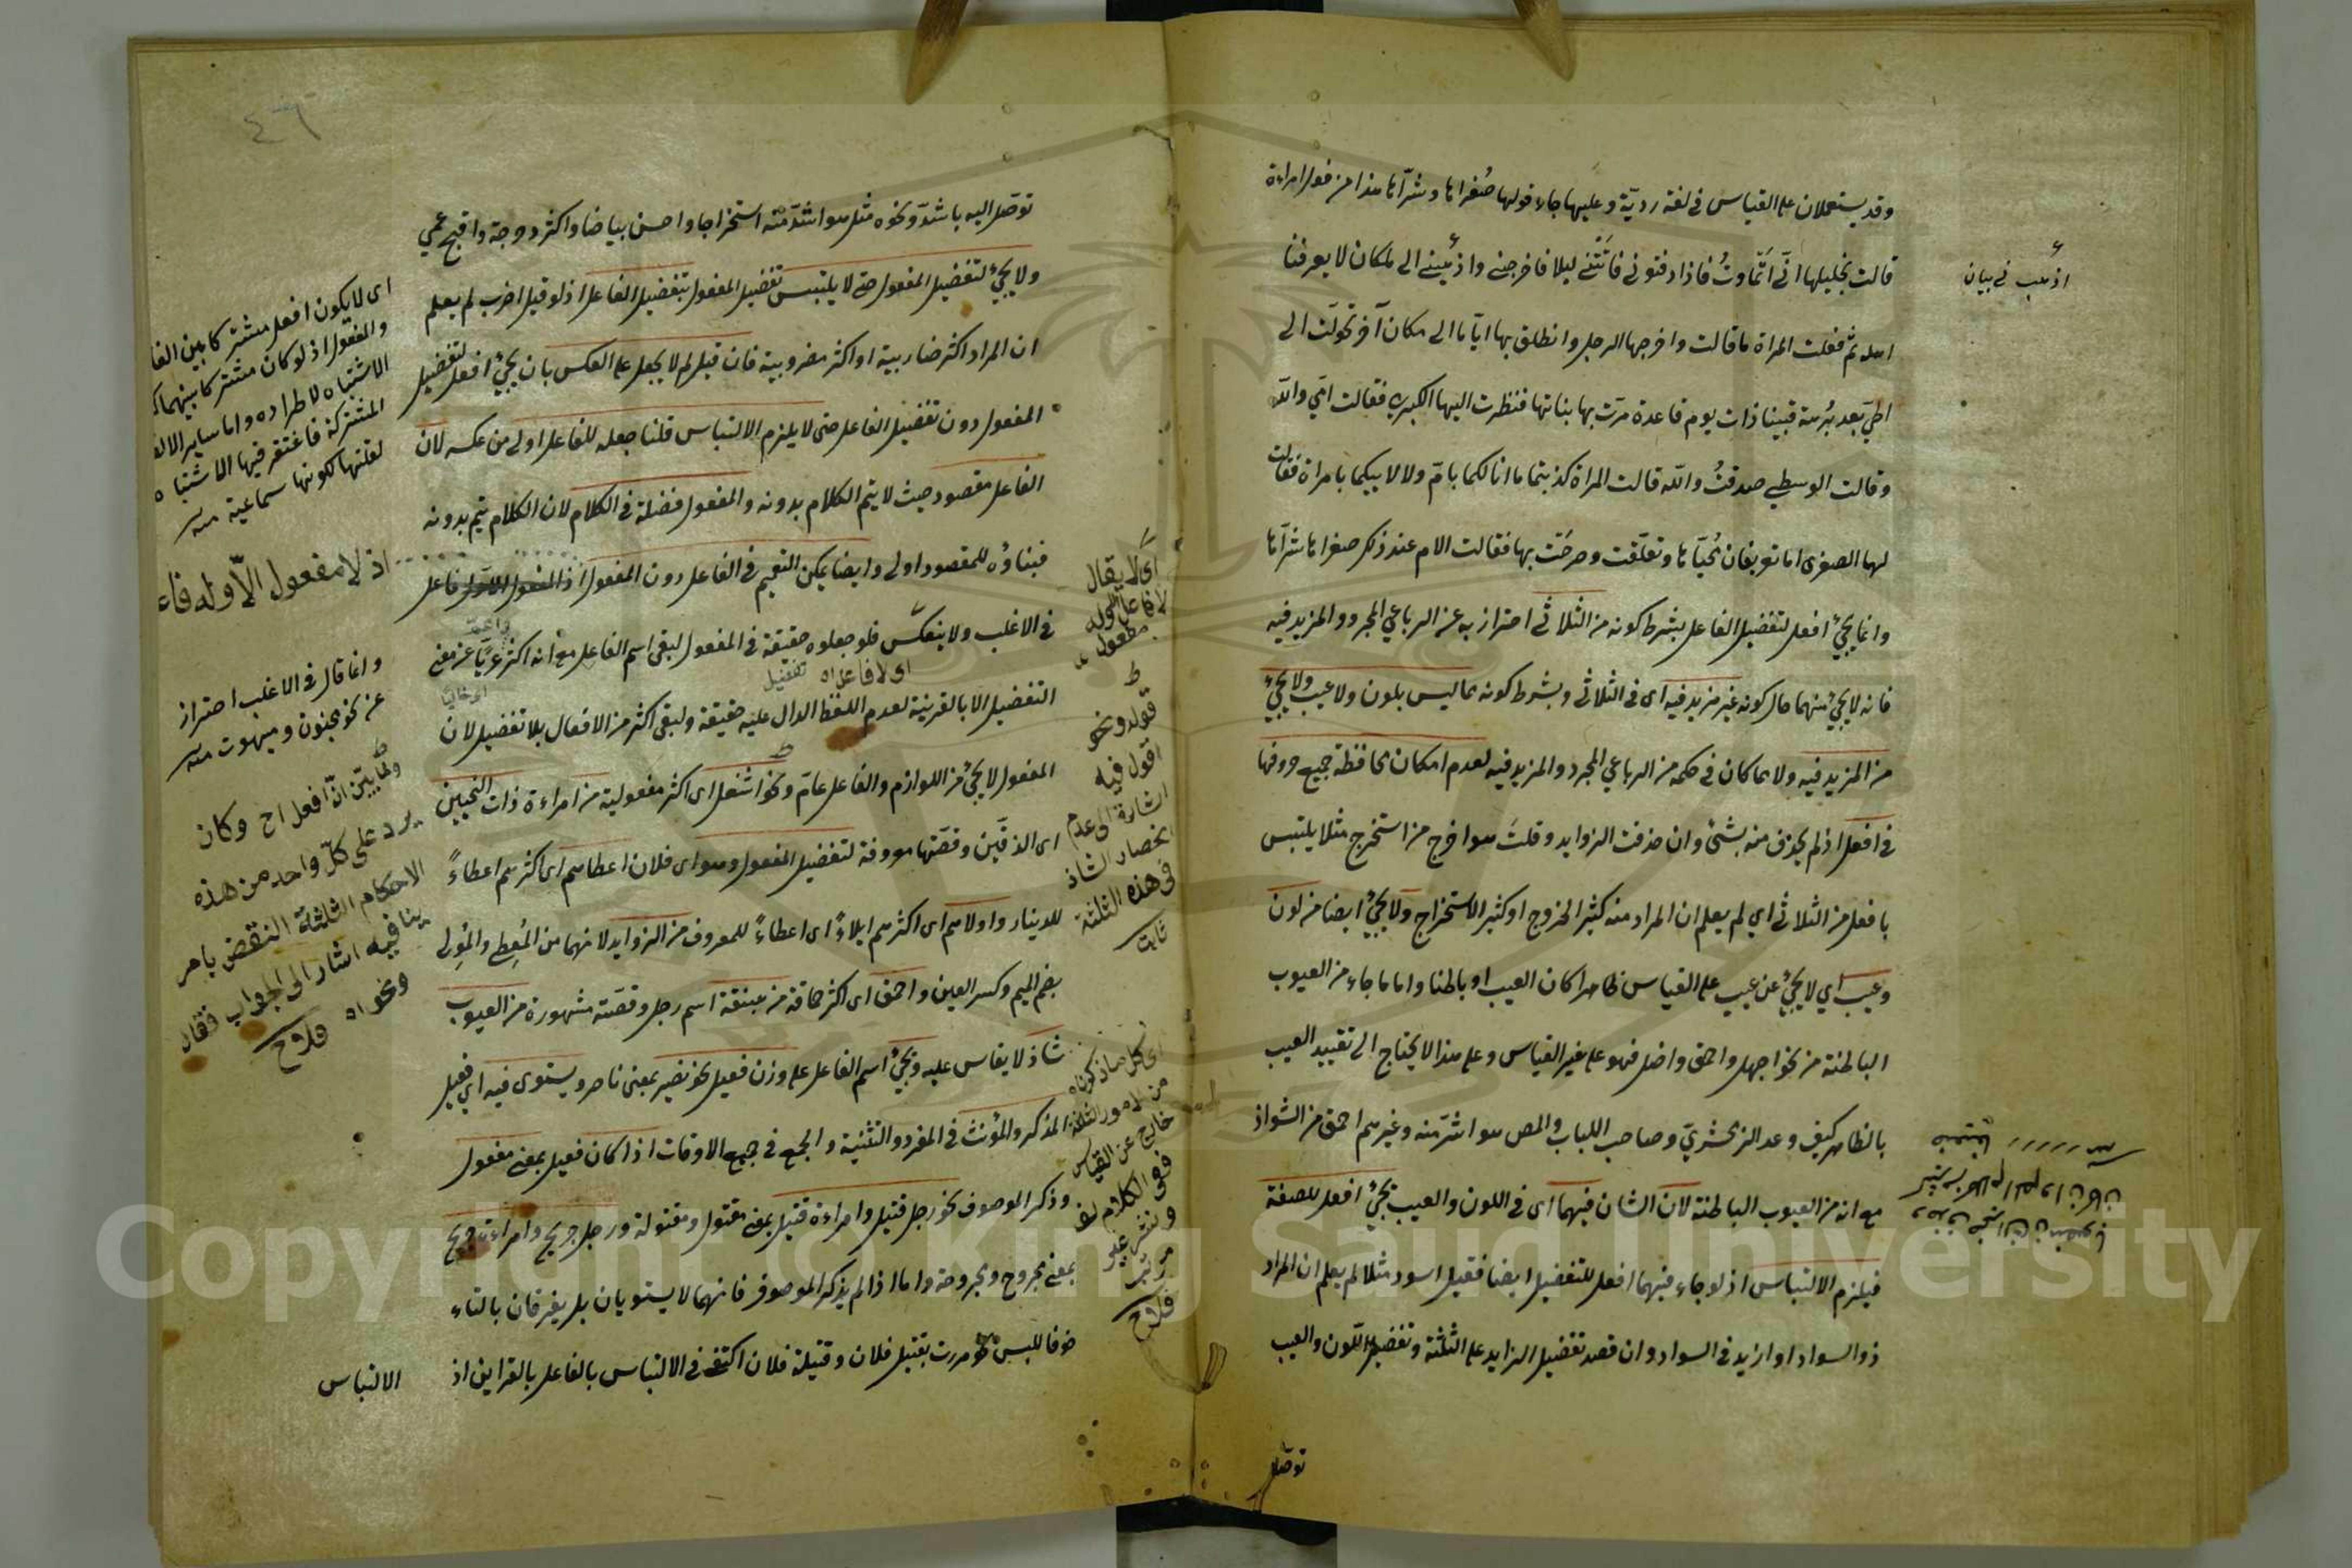 وقد يستعملان على القياس في لغة ردية وعليها جاء قولها صُغراها وشرّاها هذا من قول امراءة
قالت لخليلها انّي اَتَماوتُ فاذا دفنوني فاتني ليلا فاخرجني واذهبني الى مكان لا يعرفنا
اهله ثم فعلت المراة ما قالت واخرجها الرجل وانطلق بها اياما الى مكان آخر تحولت الى
الحيّ بعد بُرهة فبينا ذات يوم قاعدة مرّت بها بناتها فنظرت اليها الكبرى فقالت امّي والله
وقالت الوسطى صدقتُ والله قالت المراة كذبتما ما انا لكما بامّ ولا لابيكما بامراة فقالت
لها الصغرى اما تعرفان مُحيّاها وتعلّقت وصرخت بها فقالت الام عند ذلك صغراها شرّاها
وانما يجئ افعل لتفضيل الفاعل بشرط كونه من الثلاثي احتراز به عن الرباعي المجرد والمزيد فيه
فانه لا يجئ منهما حال كونه غير مزيد فيه اى في الثلاثي وبشرط كونه مما ليس بلون ولا عيب ولا يجئ
من المزيد فيه ولا مما كان في حكمه من الرباعي المجرد والمزيد فيه لعدم امكان محافظة جميع حروفها
في افعل اذ لم يحذف منه بشئ وان حذفت الزوايد وقلتَ هو اخرج من استخرج مثلا يلتبس
بافعل من الثلاثي اي لم يعلم ان المراد منه كثير الخروج او كثير الاستخراج ولا يجئ ايضا من لون
وعيب اي لا يجئ عن عيب على القياس ظاهرا كان العيب او باطنا واما ما جاء من العيوب
الباطنة من نحو اجهل واحمق واضل فهو على غير القياس وعلى هذا لا يحتاج الى تقييد العيب
بالظاهر كيف وعد الزمخشريّ وصاحب اللباب والمص هو اشرّ منه وغيرهم احمق من الشواذ
مع انه من العيوب الباطنة لان الشان فيهما اى في اللون والعيب يجئ افعل للصفة
فيلزم الالتباس اذ لو جاء فيهما افعل للتفضيل ايضا فقيل اسود مثلا لم يعلم ان المراد
ذو السواد او ازيد في السواد وان قصد تفضيل الزايد على الثلثة وتفضيل اللون والعيب
توصّل
اذهب في بيان
٤٦
توصّل اليه باشدّ ونحوه مثل هو اشدّ منه استخراجا واحسن بياضا واكثر دحرجة واقبح عمي
ولا يجئ لتفضيل المفعول حتى لا يلتبس تفضيل المفعول بتفضيل الفاعل اذ لو قيل اضرب لم يعلم
ان المراد اكثر ضاربية او اكثر مضروبية فان قيل لم لا يجعل على العكس بان يجئ افعل لتفضيل
المفعول دون تفضيل الفاعل حتى لا يلزم الالتباس قلنا جعله للفاعل اولى من عكسه لان
الفاعل مقصود حيث لا يتم الكلام بدونه والمفعول فضلة في الكلام لان الكلام يتم بدونه
فبناؤه للمقصود اولى وايضا يمكن التعميم في الفاعل دون المفعول فاعل
في الاغلب ولا ينعكس فلو جعلوه حقيقة في المفعول لبقى اسم الفاعل مع انه اكثر عريّا عن معنى
التفضيل الا بالقرينة لعدم اللفظ الدال عليه حقيقة ولبقى اكثر من الافعال بلا تفضيل لان
المفعول لا يجئ من اللوازم والفاعل عامّ ونحو اشغل اى اكثر مفعولية من امراءة ذات النحيين
اى الذقّين وقصّتها معروفة لتفضيل المفعول وهو اى فلان اعطاهم اى اكثرهم اعطاءً
للدينار واولاهم اى اكثرهم ايلاءً اى اعطاءً للمعروف من الزوايد لانهما من المُعطِي والمُولِي
بضم الميم وكسر العين واحمق اى اكثر حماقة من هبنقة اسم رجل وقصّته مشهورة من العيوب
شاذ لا يقاس عليه ويجئ اسم الفاعل على وزن فعيل نحو نصير بمعنى ناصر ويستوى فيه اي فعيل
المذكر والمؤنث في المفرد والتثنية والجمع في جميع الاوقات اذا كان فعيل بمعنى مفعول
وذكر الموصوف نحو رجل قتيل وامراءة قتيل بمعنى مقتول ومقتولة ورجل جريح وامراءة جريح
بمعنى مجروح ومجروحة واما اذا لم يذكر الموصوف فانهما لا يستويان بل يفرقان بالتاء
خوفا للبس نحو مررت بقتيل فلان وقتيلة فلان اكتفى في الالتباس بالفاعل بالقراين اذ
الالتباس
اى لا يكون افعل مشتركا بين الفا
والمفعول اذ لو كان مشتركا بينهما
الاشتباه لاطراده واما ساير الالف
المشتركة فاغتفر فيها الاشتباه
لقلتها لكونها سماعية منه
اذ لا مفعول الّا وله فاء
وانما قال في الاغلب احتراز
عن نحو مجنون ومبهوت منه
ولمّا بيّن انّ افعل اح وكان
يرد على كلّ واحد من هذه
الاحكام الثلثة النقض باحر
ينافيه اشار الى الجواب فقال
ونحو اه فلاح
اى لا يقال
لا فاعل الّا وله
مفعول
قوله ونحو
اقول فيه
اشارة الى عدم
انحصار الشاذ
في هذه الثلثة
ثابت
اى كل ما ذكرناه
من الامور الثلثة
خارج عن القياس
ففى الكلام لف
ونشر غير
مرتب
فلاح